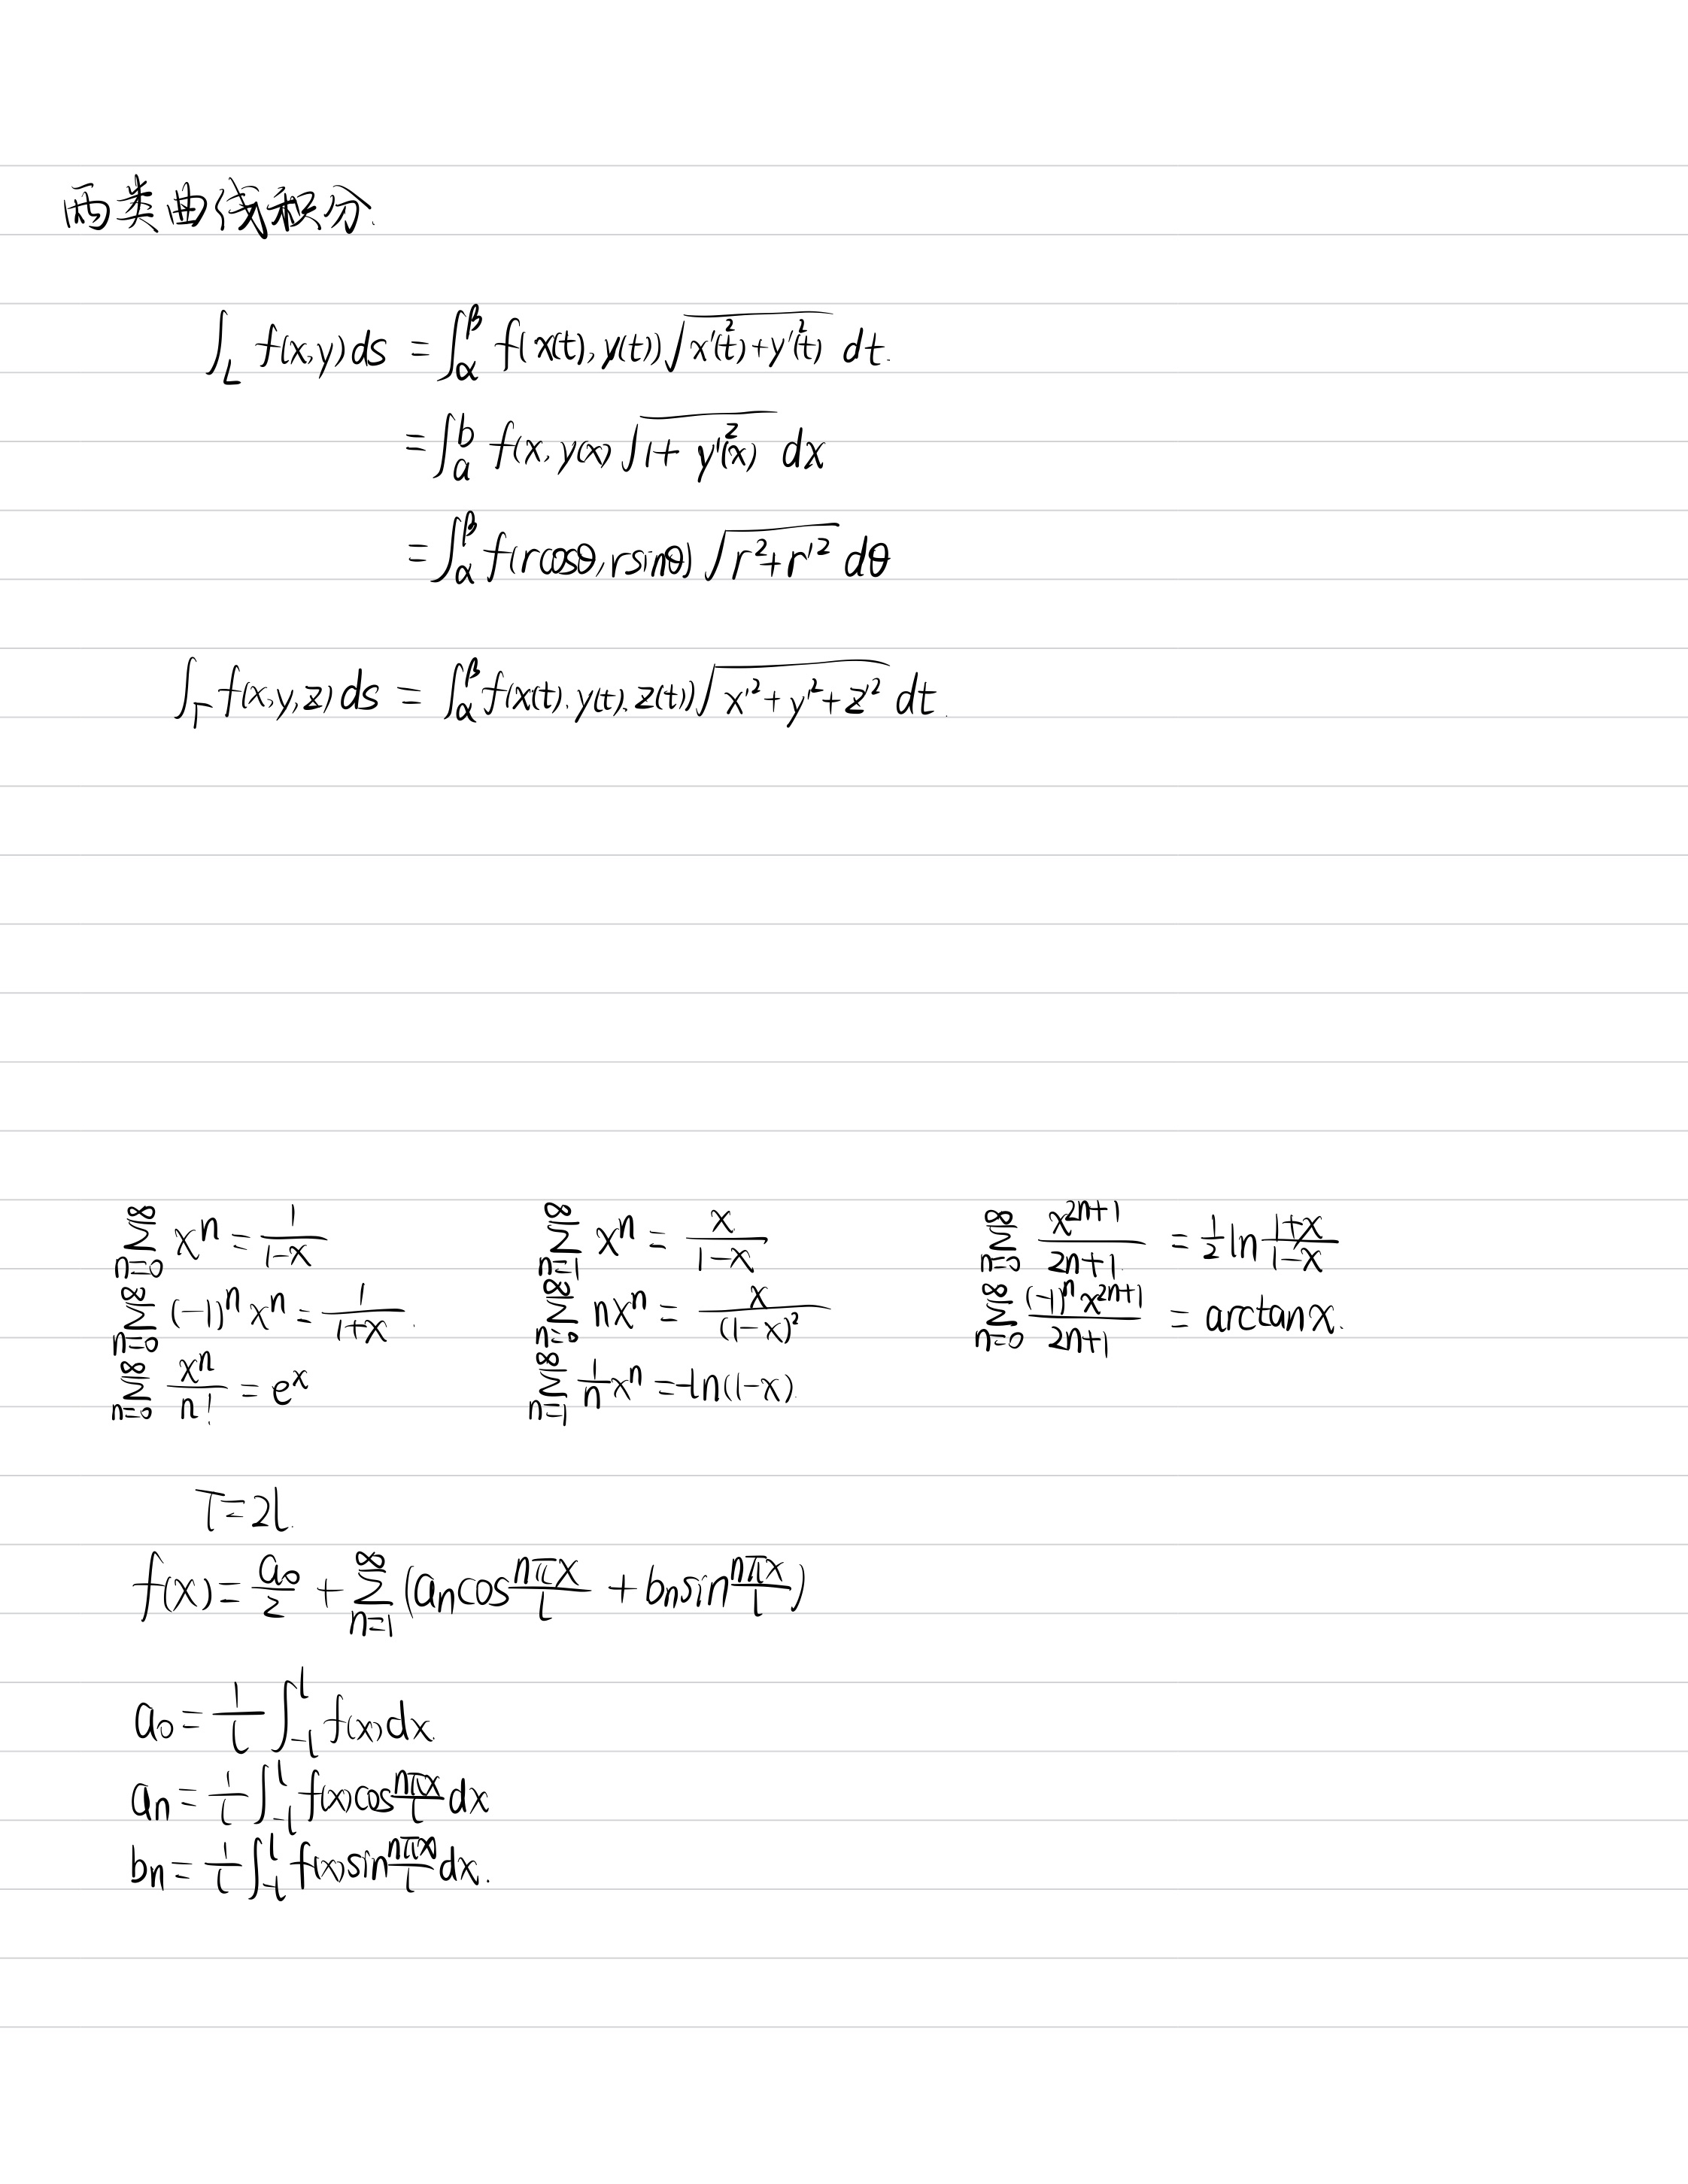 两类曲线积分.
∫_L f(x,y)ds = ∫_α^β f(x(t),y(t))√(x'²(t)+y'²(t)) dt.
= ∫_a^b f(x,y(x)) √(1+y'²(x)) dx
= ∫_α^β f(rcosθ,rsinθ) √(r²+r'²) dθ
∫_Γ f(x,y,z)ds = ∫_α^β f(x(t),y(t),z(t))√(x'²+y'²+z'²) dt.
∑_{n=0}^∞ x^n = 1/(1-x) ∑_{n=1}^∞ x^n = x/(1-x) ∑_{n=0}^∞ x^{2n+1}/(2n+1) = 1/2 ln (1+x)/(1-x)
∑_{n=0}^∞ (-1)^n x^n = 1/(1+x). ∑_{n=0}^∞ nx^n = x/(1-x)² ∑_{n=0}^∞ (-1)^n x^{2n+1}/(2n+1) = arctanx.
∑_{n=0}^∞ x^n/n! = e^x ∑_{n=1}^∞ 1/n x^n = -ln(1-x).
T=2l.
f(x) = a₀/2 + ∑_{n=1}^∞ (a_n cos nπx/l + b_n sin nπx/l)
a₀ = 1/l ∫_{-l}^l f(x)dx.
a_n = 1/l ∫_{-l}^l f(x)cos nπx/l dx
b_n = 1/l ∫_{-l}^l f(x)sin nπx/l dx.